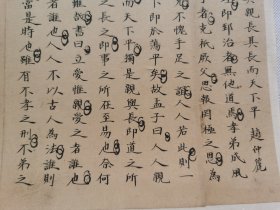 其親長其長而天下平 趙仲麓
即郅治者無他道焉孝弟成風
者克祗厥父思報罔極之恩為
不愧乎足之誼人人若此則一
下即於蕩平矣故孟子曰人人親
而天下平獨是親與長即道之所
之長之即事之所在至易也奈何
故書曰立愛惟親愛之者誰也
者誰也人人不以古人為法則
當是時也雖有不孝之刑不弟之